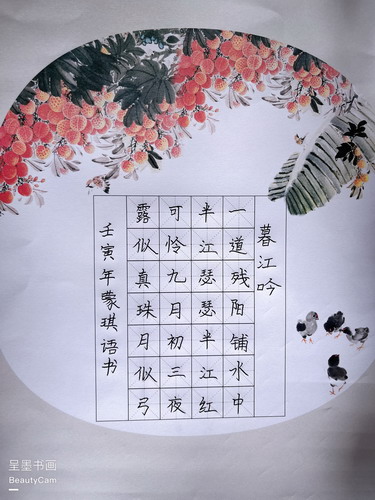 暮江吟
一道残阳铺水中
半江瑟瑟半江红
可怜九月初三夜
露似真珠月似弓
壬寅年蒙琪语书
呈墨书画
BeautyCam